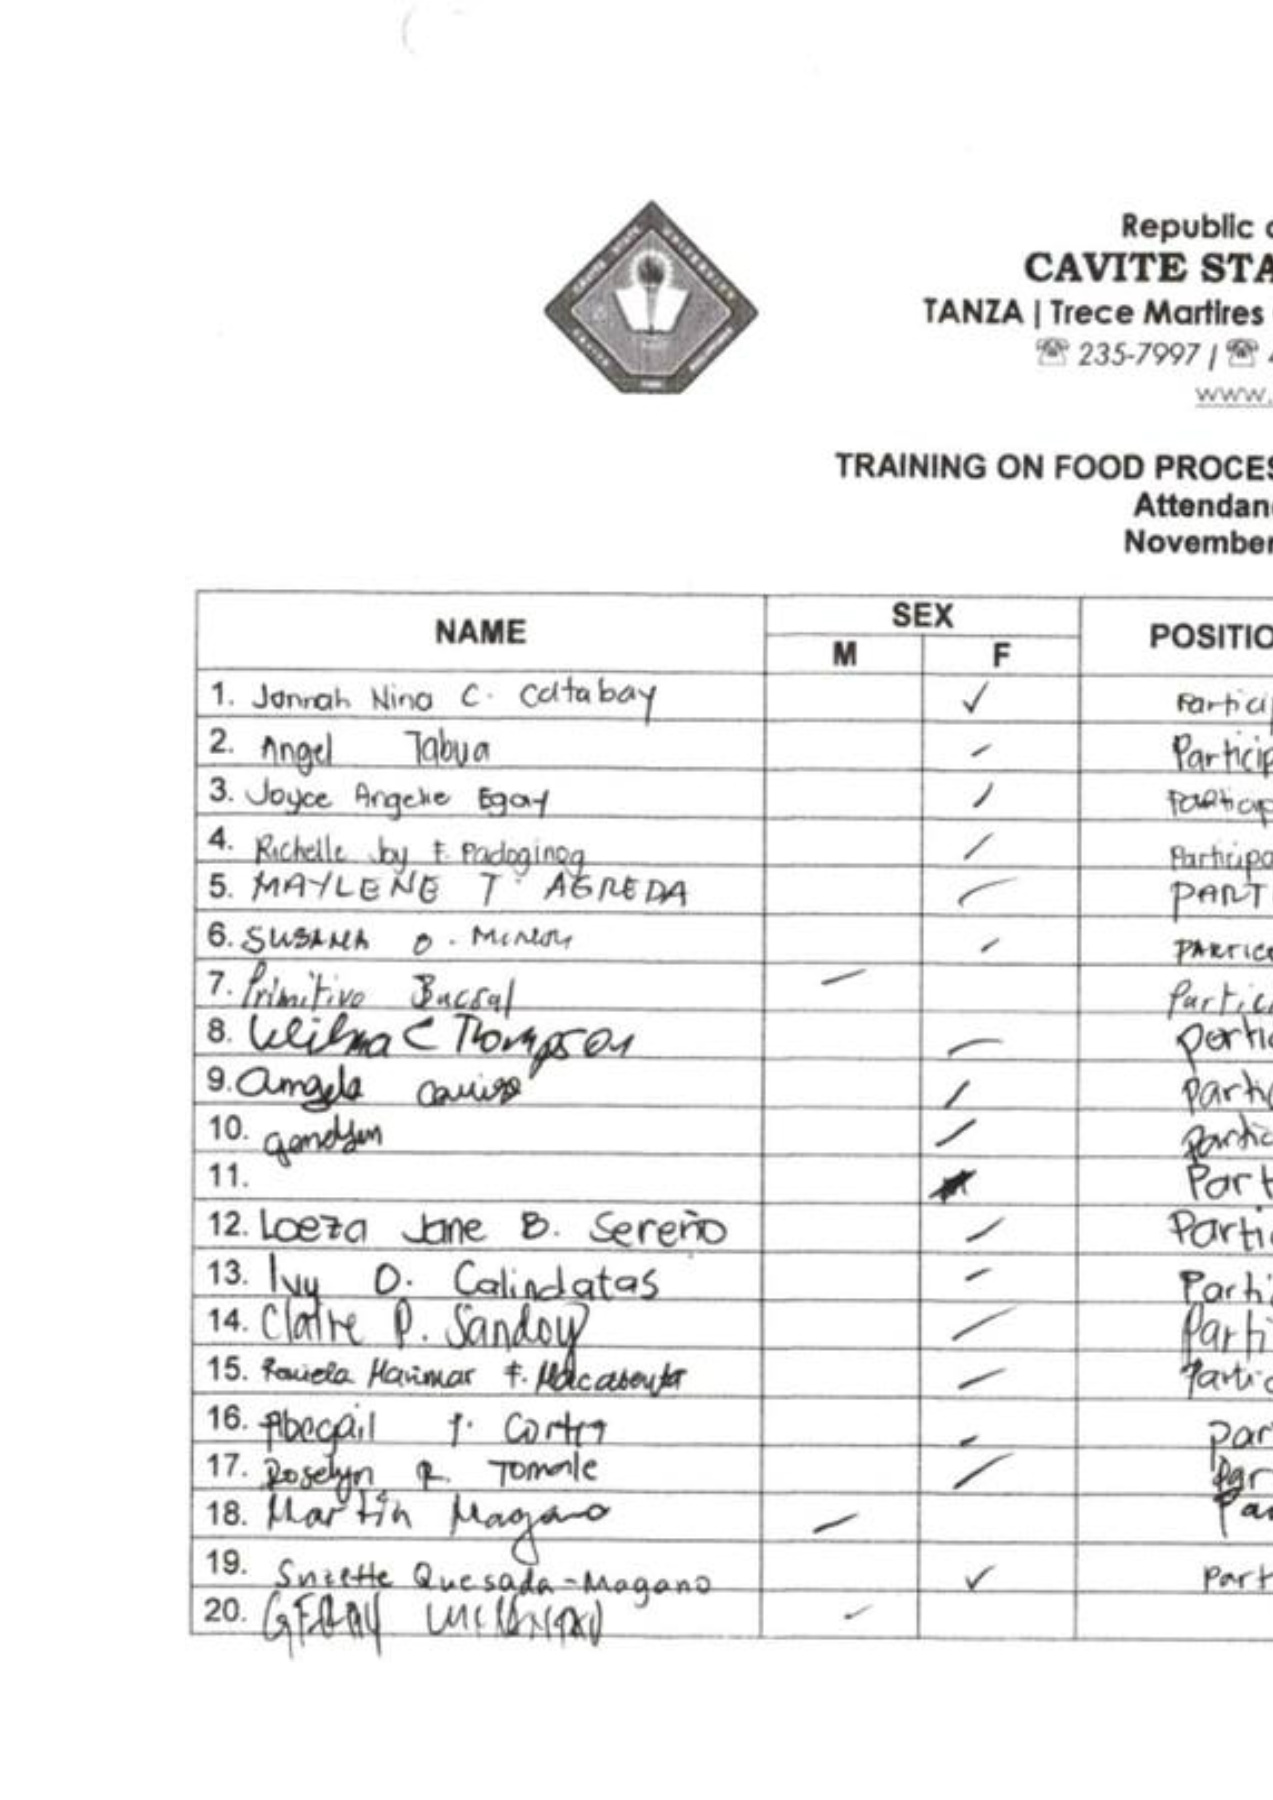 Republic
CAVITE STA
TANZA | Trece Martires
235-7997 |
www.
TRAINING ON FOOD PROCES
Attendan
November
NAME SEX POSITIO
M F
1. Jannah Nina C. Catabay ✓ Particip
2. Angel Tabua Particip
3. Joyce Angelie Egay Particip
4. Richelle Joy F. Padoginog Participa
5. MAYLENE T. AGREDA PART
6. SUSANA O.
7. Primitivo Bacsal Partici
8. Wilma C Thompson partic
9. Angela partic
10. partic
11. Part
12. Loeza Jane B. Sereño Parti
13. Ivy O. Calindatas Parti
14. Claire P. Sandoy Parti
15. Marimar F. Partic
16. Abegail Par
17. Roselyn R. Tomale Par
18. Martin Magano Pa
19. Suzette Quesada-Magano ✓ Part
20.